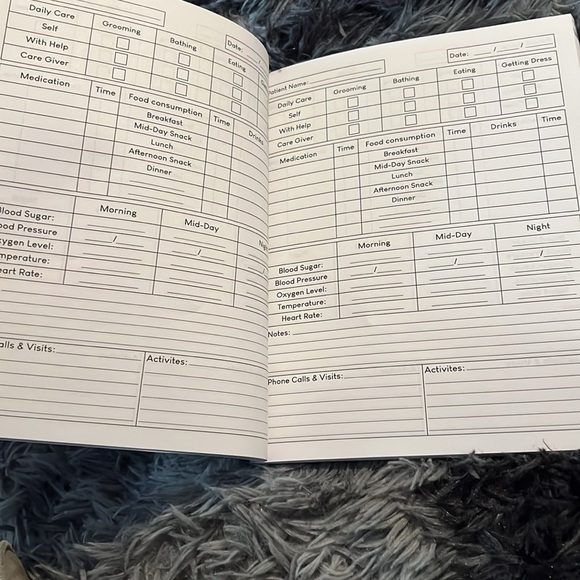 Daily Care Grooming Bathing Eating
Date:
Self
With Help
Care Giver
Medication Time Food consumption Time Drinks
Breakfast
Mid-Day Snack
Lunch
Afternoon Snack
Dinner
Morning Mid-Day
Blood Sugar:
Blood Pressure /
Oxygen Level: /
Temperature:
Heart Rate:
Calls & Visits: Activites:
Patient Name: Date: / /
Daily Care Grooming Bathing Eating Getting Dress
Self
With Help
Care Giver
Medication Time Food consumption Time Drinks Time
Breakfast
Mid-Day Snack
Lunch
Afternoon Snack
Dinner
Morning Mid-Day Night
Blood Sugar:
Blood Pressure / / /
Oxygen Level:
Temperature:
Heart Rate:
Notes:
Phone Calls & Visits: Activites: